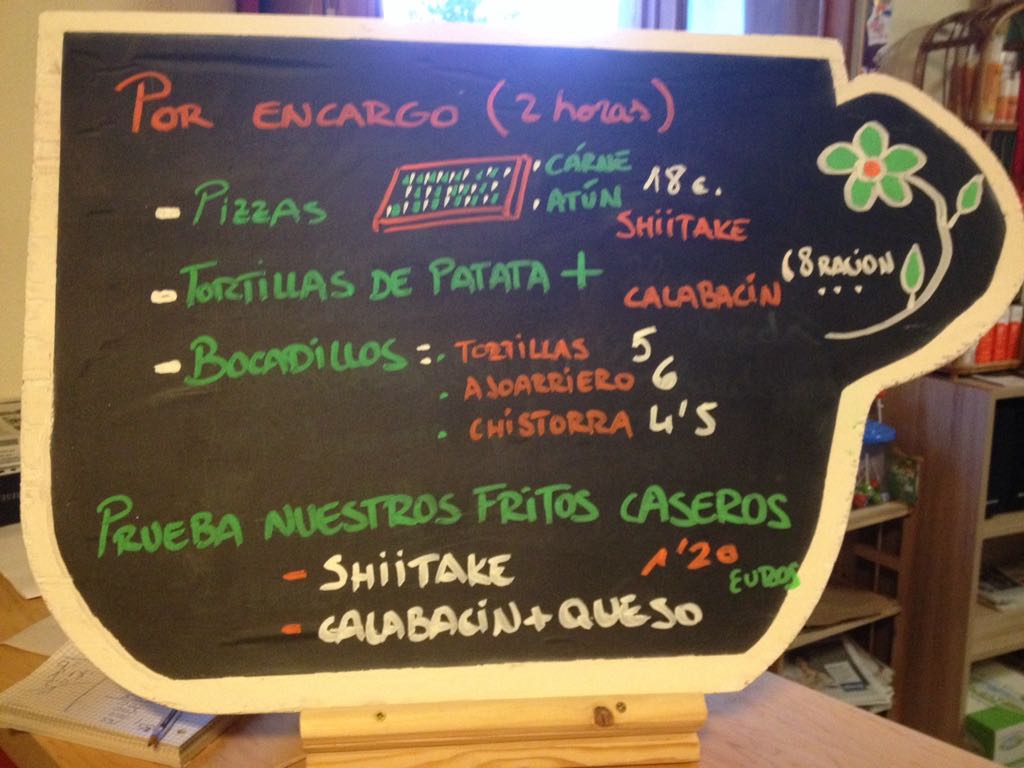 POR ENCARGO (2 horas)
- PIZZAS · CÁRNE 18 €.
· ATÚN
SHIITAKE
- TORTILLAS DE PATATA + CALABACÍN (8 RACION ...
- BOCADILLOS = · TORTILLAS 5
· AJOARRIERO 6
· CHISTORRA 4'5
PRUEBA NUESTROS FRITOS CASEROS
- SHIITAKE 1'20 EUROS
- CALABACIN + QUESO